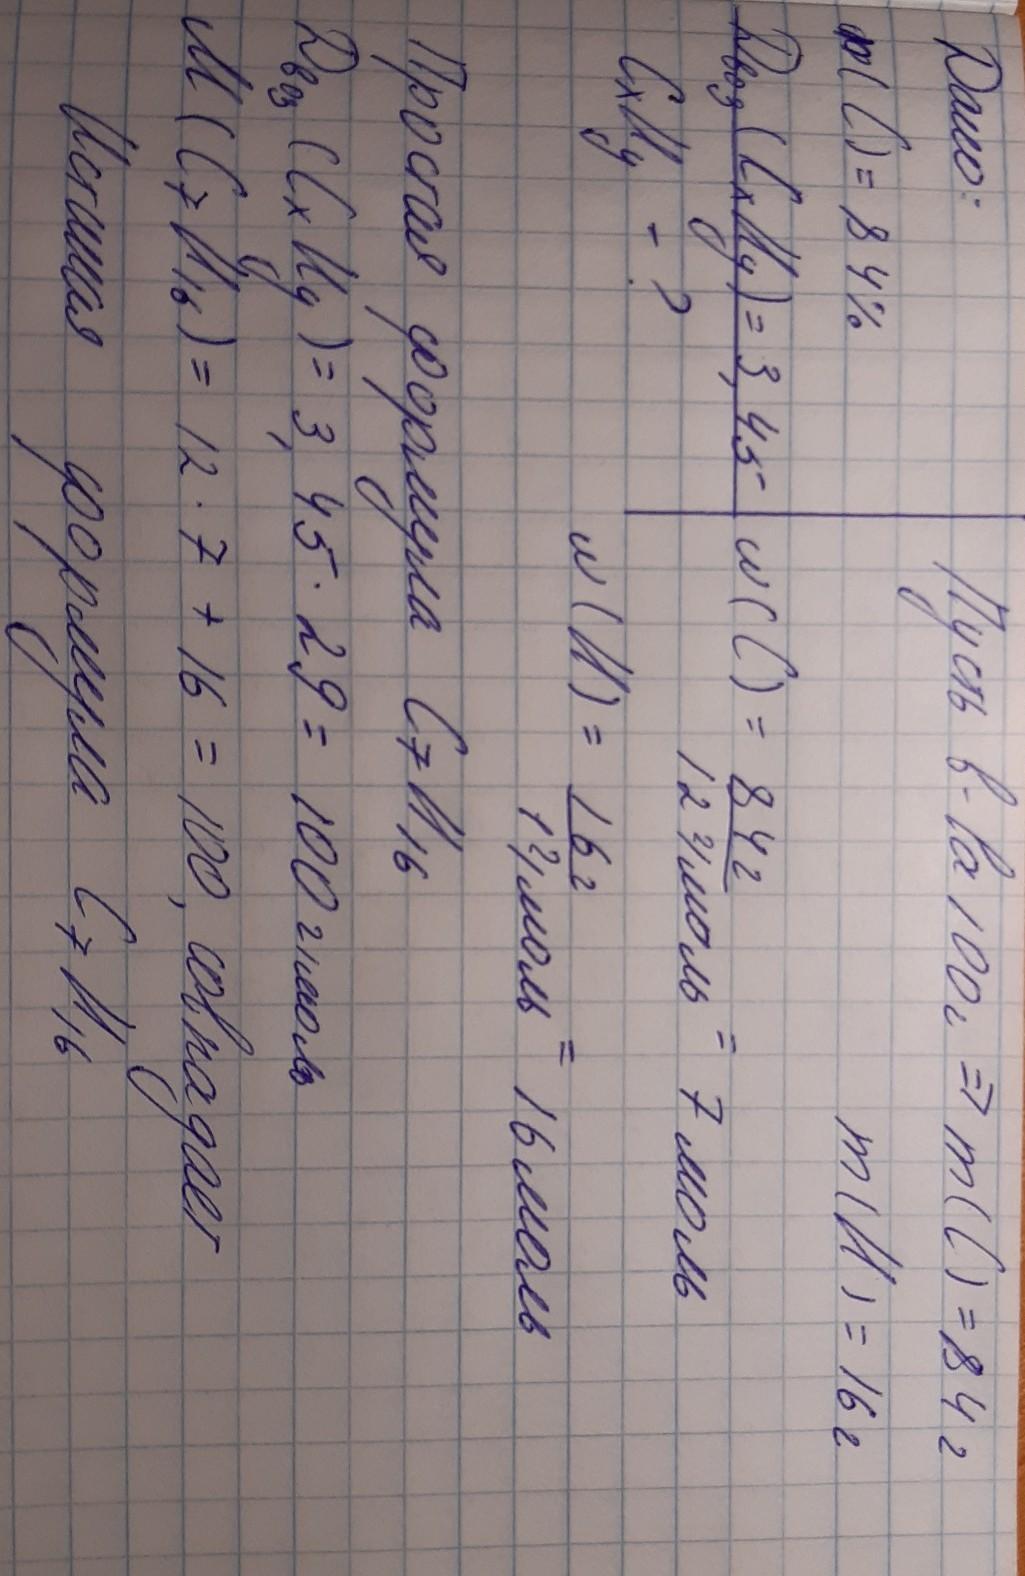 Дано:
φ(C) = 84%
Dвоз(CxHy) = 3,45
CxHy - ?
Пусть в-ва 100г ⇒ m(C) = 84 г
m(H) = 16 г
n(C) = 84г / 12 г/моль = 7 моль
n(H) = 16г / 1 г/моль = 16 моль
Простая формула C7H16
Dвоз(CxHy) = 3,45 · 29 = 100 г/моль
M(C7H16) = 12 · 7 + 16 = 100, совпадает
Истиная формула C7H16